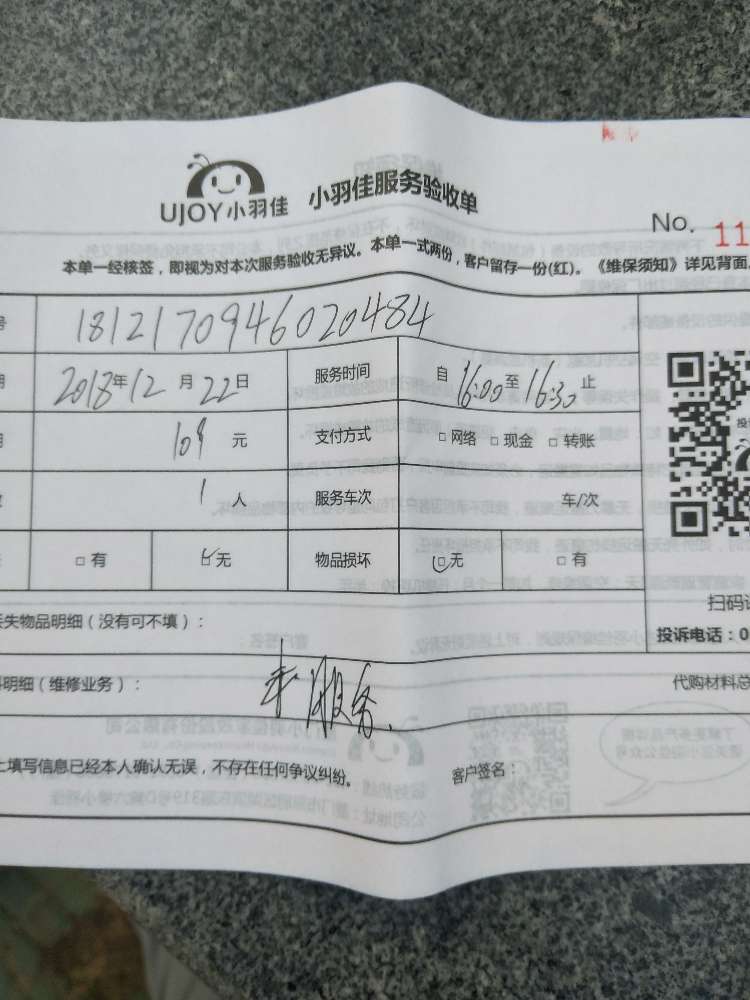 UJOY小羽佳 小羽佳服务验收单
No. 11
本单一经核签，即视为对本次服务验收无异议。本单一式两份，客户留存一份(红)。《维保须知》详见背面
号 181217094602 0484
期 2018年12月22日 服务时间 自16:00至16:30止
用 109元 支付方式 □网络 □现金 □转账
数 1人 服务车次 车/次
□有 □无 物品损坏 □无 □有
扫码
丢失物品明细（没有可不填）： 投诉电话：0
料明细（维修业务）： 未服务. 代购材料总
上填写信息已经本人确认无误，不存在任何争议纠纷。 客户签名：